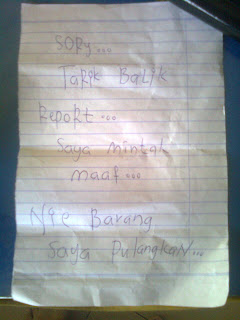 SORy...
TaRik BaLik
RepoRt...
Saya mintak
maaf...
Nie Barang
saya PulangkaN...